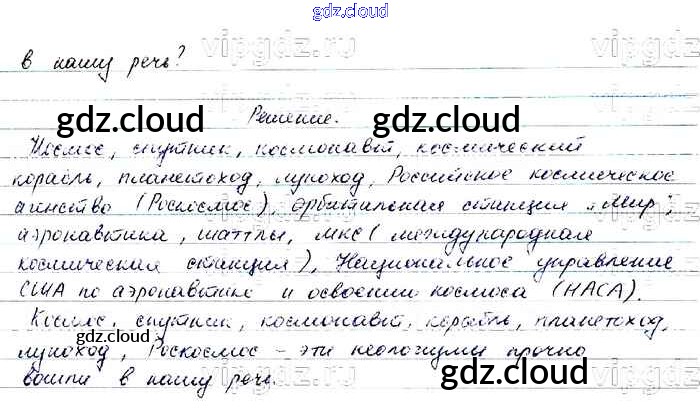 gdz.cloud
vipgdz.ru vipgdz.ru
в нашу речь?
gdz.cloud gdz.cloud
Решение.
Космос, спутник, космонавт, космический
корабль, планетоход, луноход, Российское космическое
агенство (Роскосмос), орбитальная станция "Мир",
аэронавтика, шаттлы, МКС (международная
космическая станция), Национальное управление
США по аэронавтике и освоении космоса (НАСА).
Космос, спутник, космонавт, корабль, планетоход,
gdz.cloud
луноход, Роскосмос - эти неологизмы прочно
вошли в нашу речь.
gdz.cloud gdz.cloud